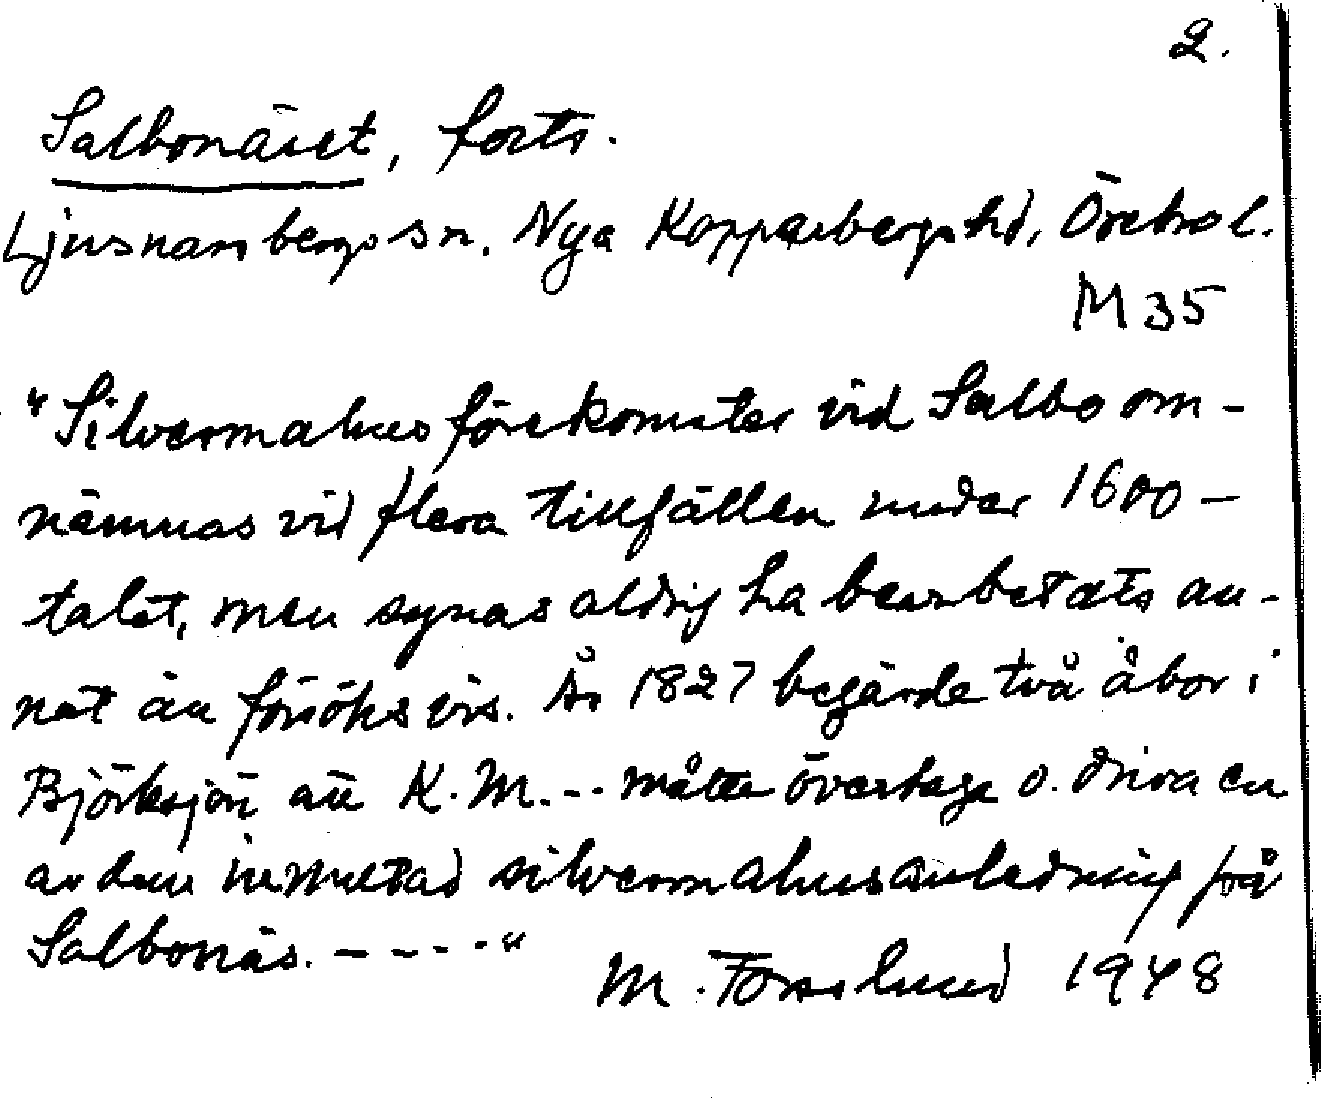 2.
Salbonäset, forts.
Ljusnarsbergs sn. Nya Kopparbergs hd, Örebro l.
M 35
"Silvermalmsförekomster vid Salbo om-
nämnas vid flera tillfällen under 1600-
talet, men synas aldrig ha bearbetats an-
nat än försöksvis. År 1827 begärde två åbor i
Björksjön att K.M. -- måtte övertaga o. driva en
av dem inmutad silvermalmsanledning på
Salbonäs. - - - - "
M. Forslund 1948